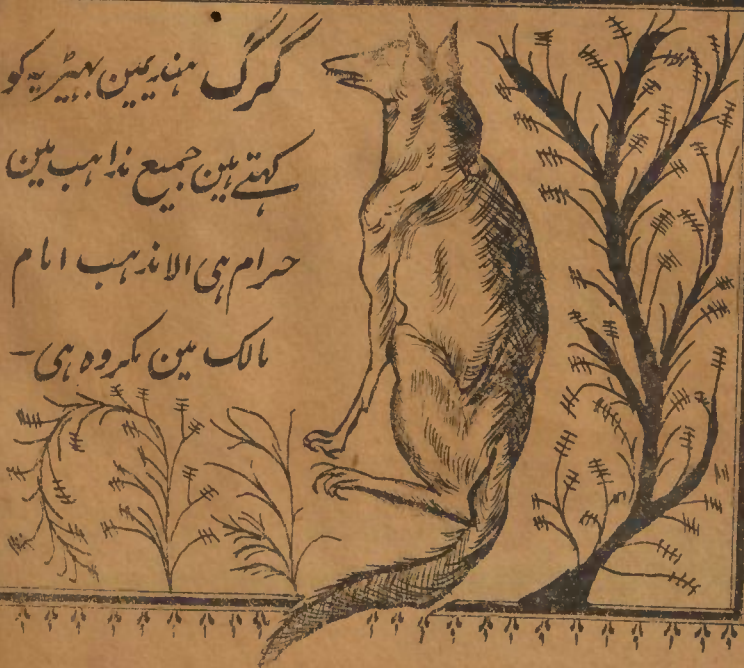 گرگ ہندیمین بہیڑیہ کو
کہتے ہین جمیع مذاہب مین
حرام ہی الا مذہب امام
مالک مین مکروہ ہی-